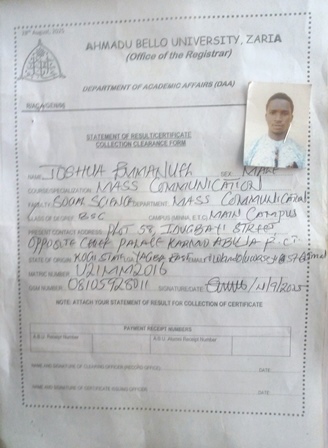 19th August, 2025
AHMADU BELLO UNIVERSITY, ZARIA
(Office of the Registrar)
DEPARTMENT OF ACADEMIC AFFAIRS (DAA)
STATEMENT OF RESULT/CERTIFICATE
COLLECTION CLEARANCE FORM
NAME JOSHUA EMMANUEL SEX MALE
COURSE/SPECIALIZATION: MASS COMMUNICATION
FACULTY: SOCIAL SCIENCE DEPARTMENT: MASS COMMUNICATION
CLASS OF DEGREE BSC CAMPUS (MAIN/A, E.T.C) MAIN CAMPUS
PRESENT CONTACT ADDRESS: PLOT 58, STREET
OPPOSITE CHIEF PALACE ABUJA F.CT
STATE OF ORIGIN: KOGI STATE
MATRIC NUMBER U21MM2016
GSM NUMBER 08105928011 SIGNATURE/DATE
NOTE: ATTACH YOUR STATEMENT OF RESULT FOR COLLECTION OF CERTIFICATE
PAYMENT RECEIPT NUMBERS
A.B.U. Receipt Number A.B.U. Alumni Receipt Number
NAME AND SIGNATURE OF CLEARING OFFICER (RECORD OFFICE) DATE
NAME AND SIGNATURE OF CERTIFICATE ISSUING OFFICER DATE